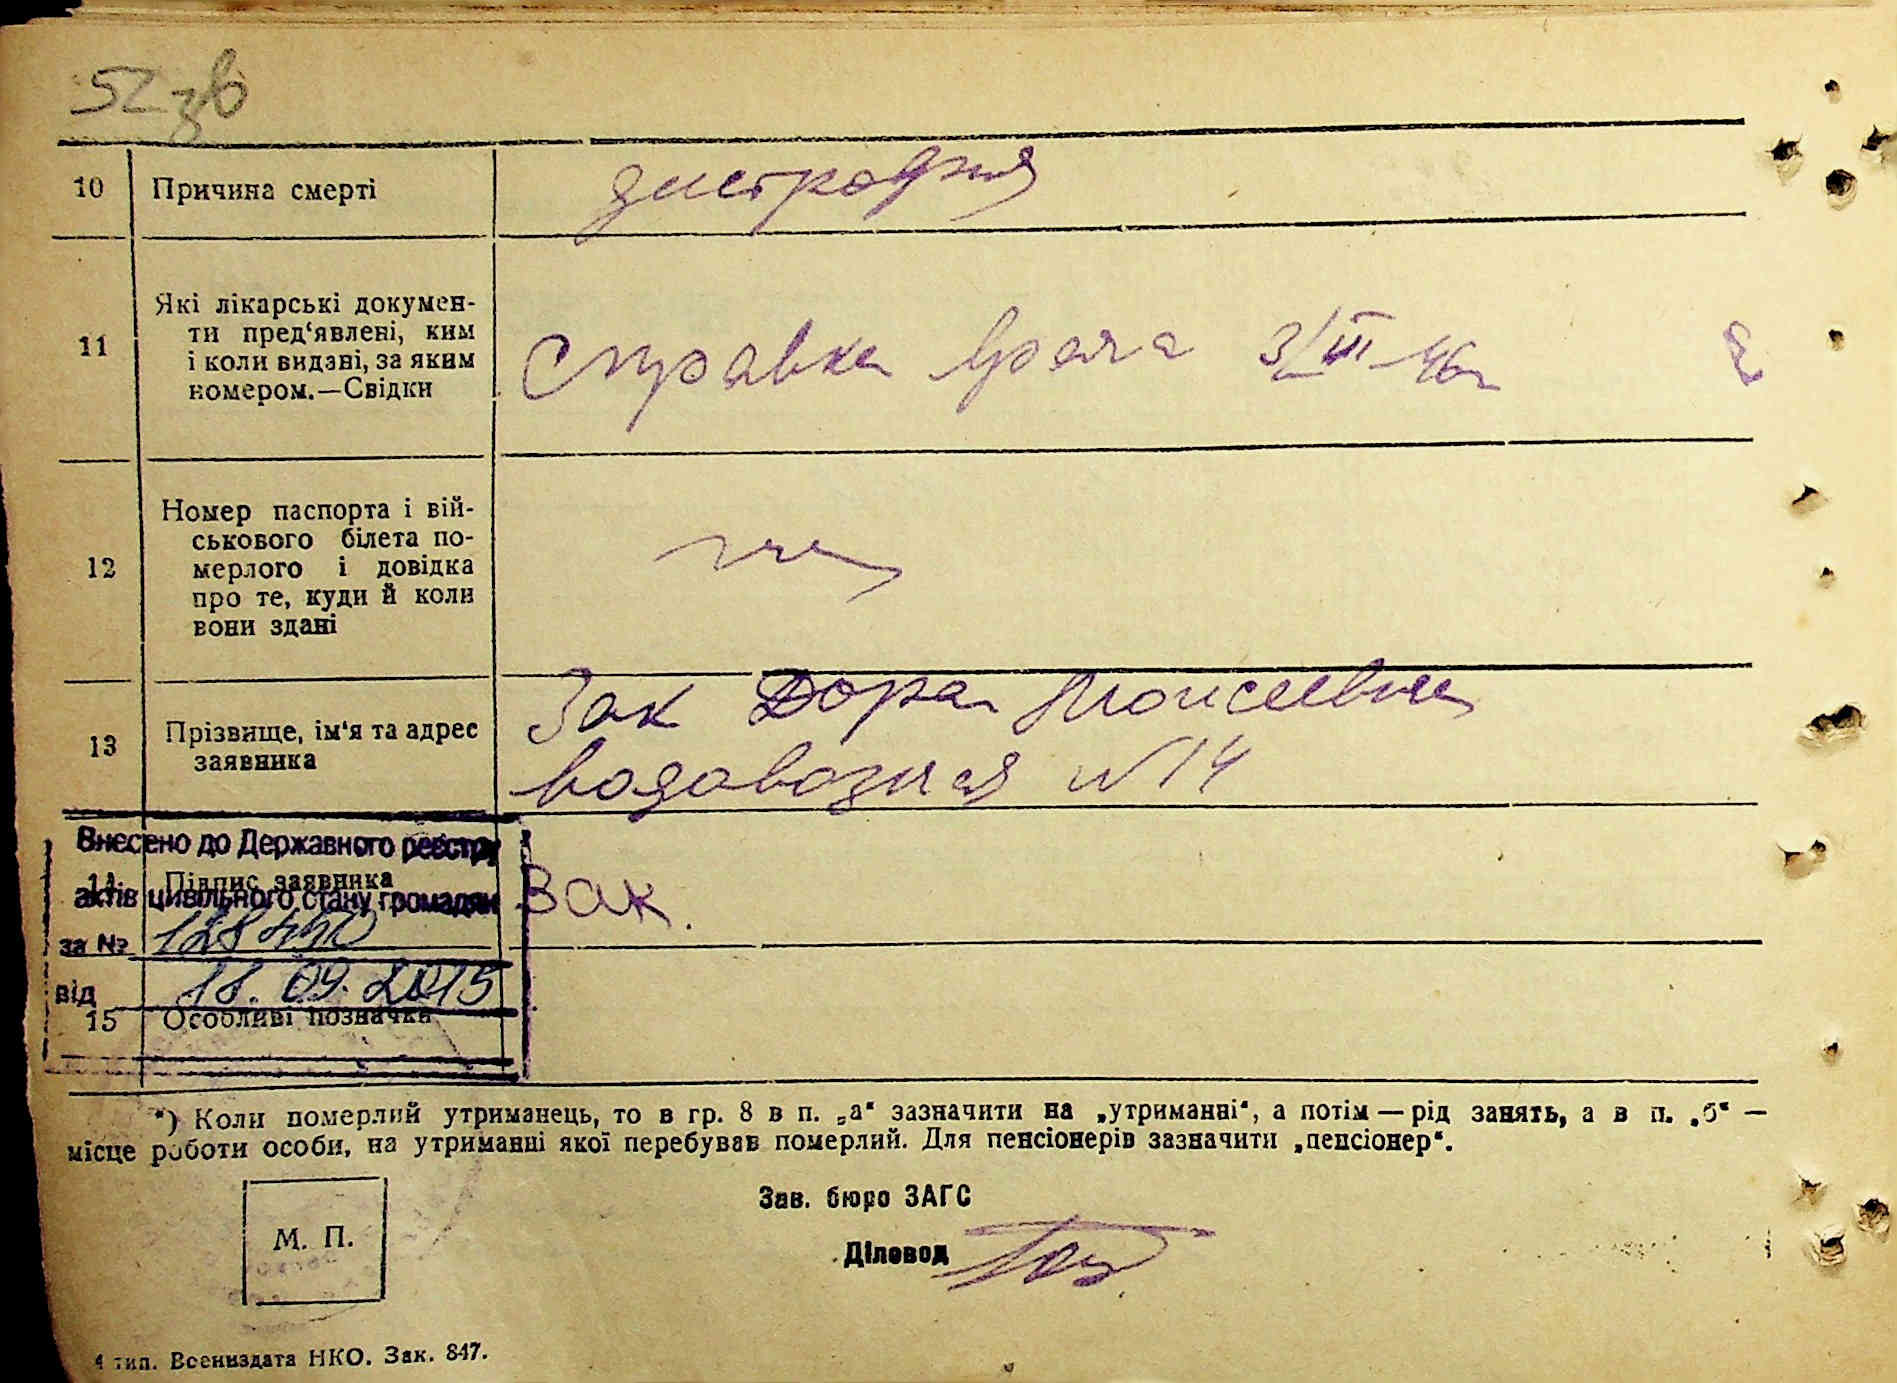 52зв
10 Причина смерті дистрофия
11 Які лікарські докумен-
ти пред‘явлені, ким
і коли видані, за яким
номером.—Свідки
Справка врача 3/III-46г
12 Номер паспорта і вій-
ськового білета по-
мерлого і довідка
про те, куди й коли
вони здані
13 Прізвище, ім‘я та адрес
заявника
Зак Дора Моисеевна
водовозная №14
Внесено до Державного реєстру
14 Підпис заявника Зак.
актів цивільного стану громадян
за №
від 18.09.2015
15 Особливі позначка
*) Коли померлий утриманець, то в гр. 8 в п. „а“ зазначити на „утриманні“, а потім — рід занять, а в п. „б“ —
місце роботи особи, на утриманні якої перебував померлий. Для пенсіонерів зазначити „пенсіонер“.
М. П.
Зав. бюро ЗАГС
Діловод
4 тип. Воениздата НКО. Зак. 847.